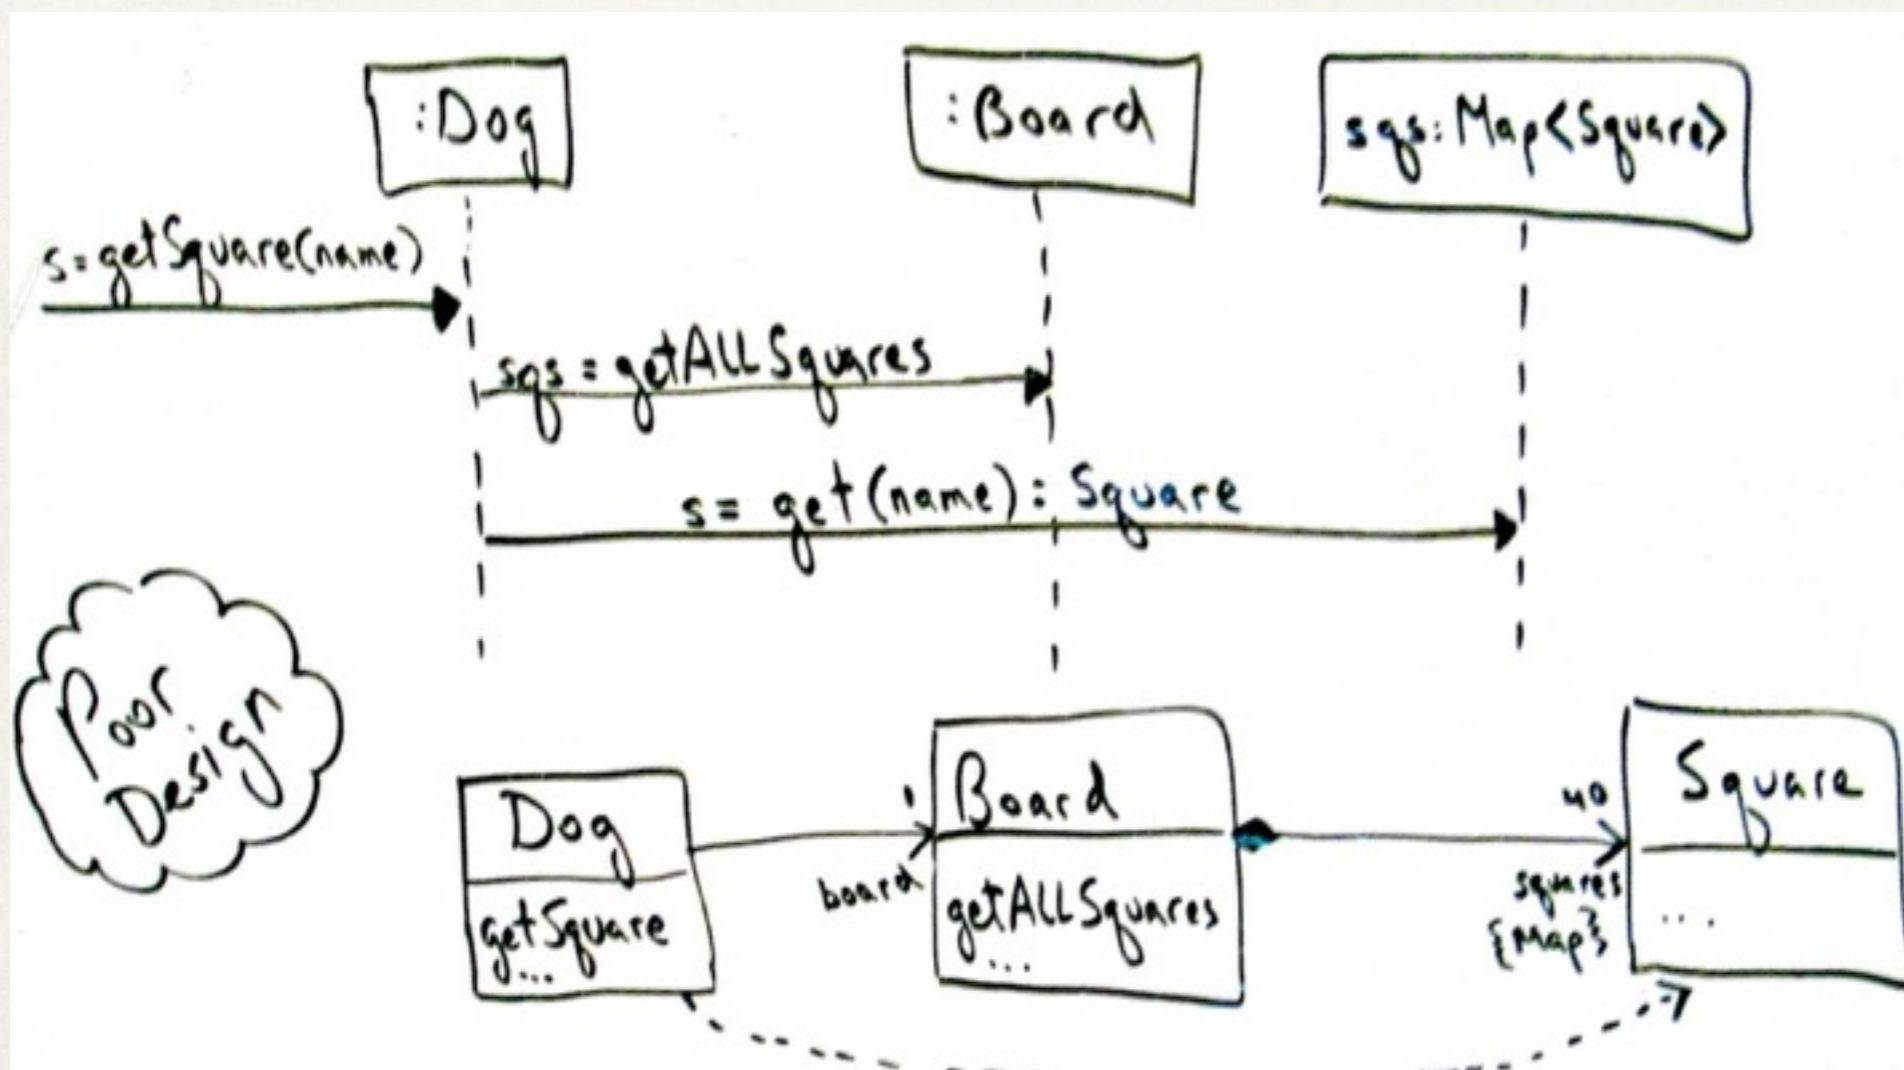 :Dog
:Board
sqs: Map<Square>
s=getSquare(name)
sqs = getALLSquares
s= get(name): Square
Poor
Design
Dog
getSquare
...
1
board
Board
getALLSquares
...
40
squares
{Map}
Square
...